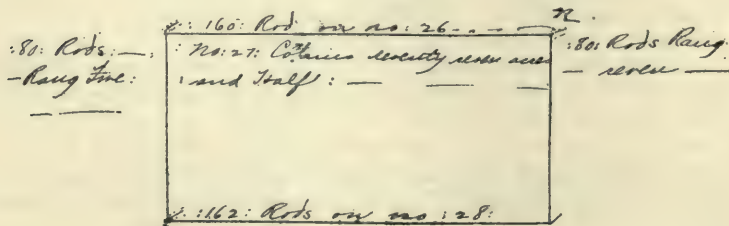 N.
: 160: Rod on no: 26 - - - -
:80: Rods: —.
- Rang five:
: No: 27: Contains seventy seven acres
: and Half : — — —
:80: Rods Rang
— seven —
: :162: Rods on no :28: